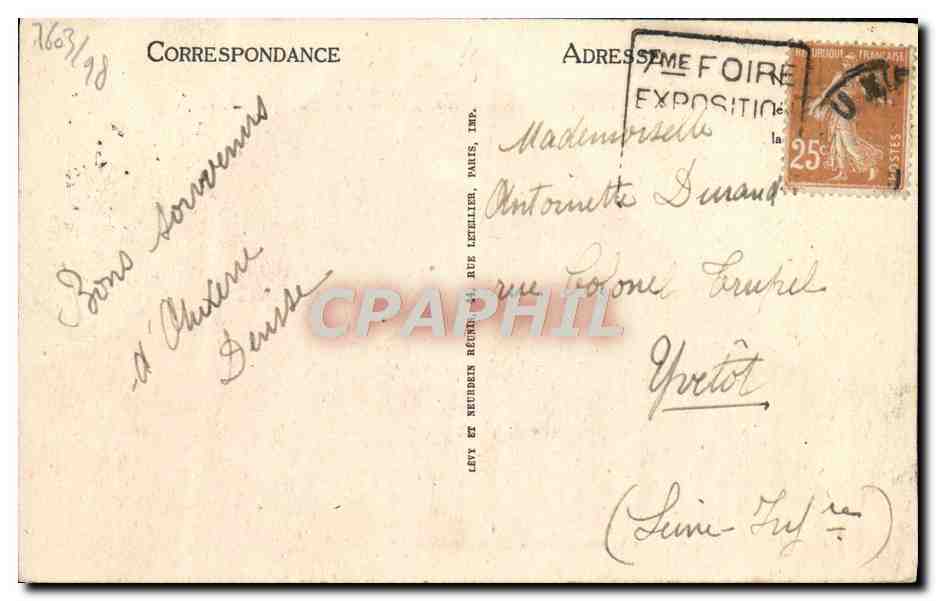 7603/98
CORRESPONDANCE
ADRESSE
7ME FOIRE
EXPOSITIO
REPUBLIQUE FRANÇAISE
25c
POSTES
la
Bons souvenirs
d'Auxerre
Denisse
LÉVY ET NEURDEIN RÉUNIS, 44, RUE LETELLIER, PARIS, IMP.
Mademoiselle
Antoinette Durand
rue Colonel Trupel
Yvetôt
(Seine-Infre)
CPAPHIL